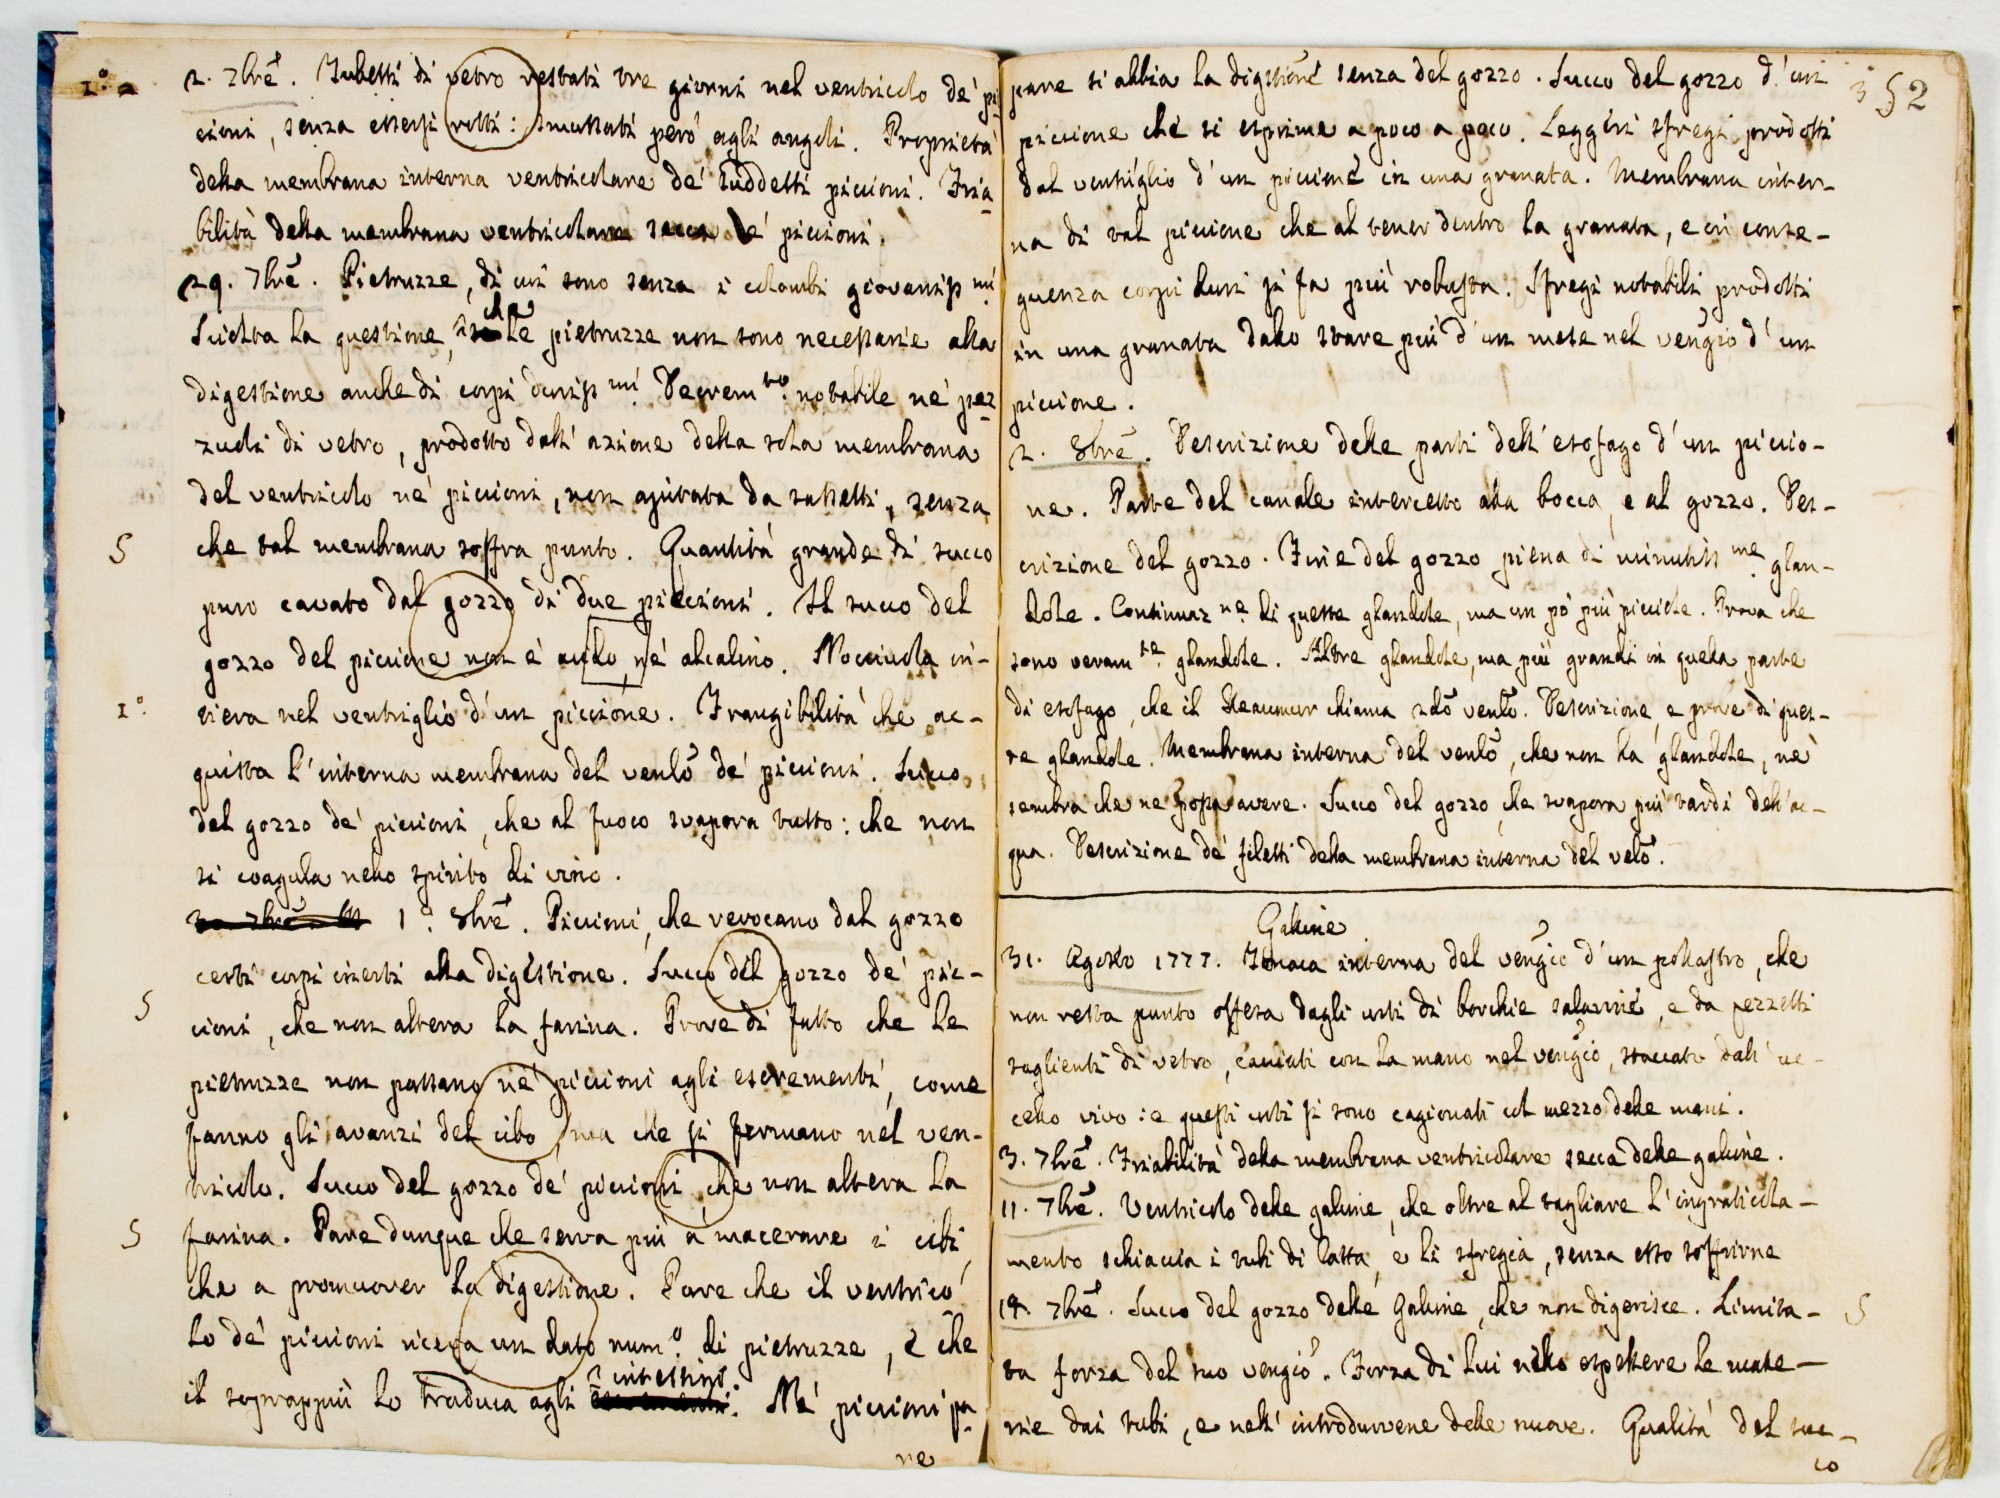 1.° a
2. 7bre. Tubetti di vetro restati tre giorni nel ventricolo de' pi-
cioni, senza essersi rotti: smussati però agli angoli. Proprietà
della membrana interna ventricolare de' suddetti piccioni. Fria-
bilità della membrana ventricolare secca de' piccioni.
29. 7bre. Pietruzze, di cui sono senza i colombi giovaniss.mi
Sciolta la questione, che le pietruzze non sono necessarie alla
digestione anche di corpi duriss.mi Decrem.to notabile ne' pez-
zuoli di vetro, prodotto dall' azione della sola membrana
del ventricolo ne' piccioni, non ajutata da sassetti, senza
S che tal membrana soffra punto. Quantità grande di succo
puro cavato dal gozzo di due piccioni. Il succo del
gozzo del piccione non è acido, nè alcalino. Nocciuola in-
1.° tiera nel ventriglio d'un piccione. Frangibilità che ac-
quista l'interna membrana del venlo de' piccioni. Succo
del gozzo de' piccioni, che al fuoco svapora tutto: che non
si coagula nello spirito di vino.
1.° 8bre. Piccioni, che revocano dal gozzo
certi corpi inerti alla digestione. Succo del gozzo de' pic-
S cioni, che non altera la farina. Prove di fatto che le
pietruzze non passano ne' piccioni agli escrementi, come
fanno gli avanzi del cibo, ma che si fermano nel ven-
tricolo. Succo del gozzo de' piccioni, che non altera la
S farina. Pare dunque che serva più a macerare i cibi,
che a promuover la digestione. Pare che il ventrico
lo de' piccioni riceva un dato num.° di pietruzze, e che
il soprappiù lo traduca agli intestini. Ne' piccioni pa-
re
3 52
pare si abbia la digestione senza del gozzo. Succo del gozzo d'un
piccione che si esprime a poco a poco. Leggeri sfregi prodotti
dal ventriglio d'un piccione in una granata. Membrana inter-
na di tal piccione che al tener dentro la granata, e in conse-
guenza corpi duri si fa più robusta. Sfregi notabili prodotti
in una granata dallo stare più d'un mese nel vengio d'un
piccione.
2. 8bre. Descrizione delle parti dell' esofago d'un piccio-
ne. Parte del canale intercetto alla bocca, e al gozzo. Des-
crizione del gozzo. Fine del gozzo piena di minutiss.me glan-
dole. Continuaz.ne di queste glandole, ma un pò più picciole. Prova che
sono veram.te glandole. Altre glandole, ma più grandi in quella parte
di esofago, che il Reaumur chiama 2do venlo. Descrizione, e prove di ques-
te glandole. Membrana interna del venlo, che non ha glandole, nè
sembra che ne possa avere. Succo del gozzo, che svapora più tardi dell' ac-
qua. Descrizione de' filetti della membrana interna del velo.
Galline
31. Agosto 1777. Tonaca interna del vengio d'un pollastro, che
non resta punto offesa dagli urti di borchie salienti, e da pezzetti
taglienti di vetro, cacciati con la mano nel vengio, staccato dall' uc-
cello vivo: e questi urti si sono cagionati col mezzo delle mani.
3. 7bre. Friabilità della membrana ventricolare secca delle galline.
11. 7bre. Ventricolo delle galline, che oltre al tagliare l'ingraticola-
mento schiaccia i tubi di latta, e li sfregia, senza esso soffrirne
18. 7bre. Succo del gozzo delle Galline, che non digerisce. Limita- S
ta forza del suo vengio. Forza di lui nello espellere le mate-
rie dai tubi, e nell' introdurvene delle nuove. Qualità del suc-
co